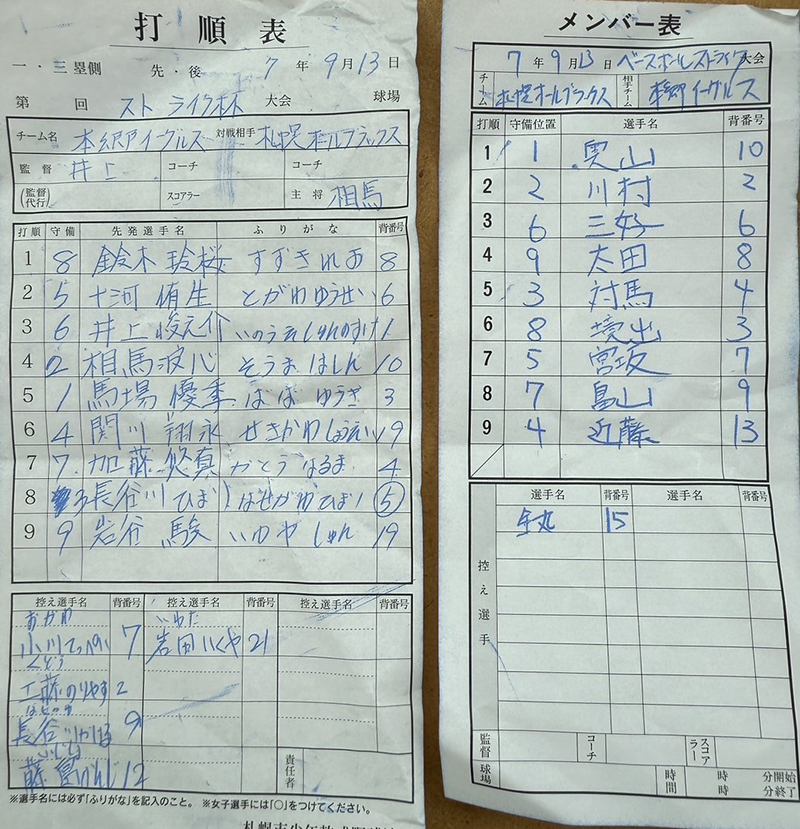 打順表
一・三塁側 先・後 7年9月13日
第 回 ストライク杯 大会 球場
チーム名 本郷イーグルス 対戦相手 札幌オールブラックス
監督 井上 コーチ コーチ
(監督代行) スコアラー 主将 相馬
打順 守備 先発選手名 ふりがな 背番号
1 8 鈴木玲桜 すずきれお 8
2 5 十河侑生 とがわゆうせい 6
3 6 井上峻之介 いのうえしゅんのすけ 1
4 2 相馬波心 そうまはしん 10
5 1 馬場優季 ばばゆうき 3
6 4 関川翔永 せきかわしょうえい 19
7 7 加藤悠真 かとうはるま 4
8 3 長谷川ひまり はせがわひまり 5
9 9 岩谷駿 いわやしゅん 19
控え選手名 背番号 控え選手名 背番号 控え選手名 背番号
おがわ いわた
小川てっぺい 7 岩田いくや 21
くどう
工藤のりやす 2
長谷川 9
藤島けんじ 12
責任者
※選手名には必ず「ふりがな」を記入のこと。 ※女子選手には「○」をつけてください。
メンバー表
7年9月13日 ベースボールストライク大会
チーム 札幌オールブラックス 相手チーム 本郷イーグルス
打順 守備位置 選手名 背番号
1 1 奥山 10
2 2 川村 2
3 6 三好 6
4 9 太田 8
5 3 対馬 4
6 8 境出 3
7 5 宮坂 7
8 7 畠山 9
9 4 近藤 13
選手名 背番号 選手名 背番号
控え選手
金丸 15
監督 コーチ スコアラー
球場 時 分開始
時間 時 分終了